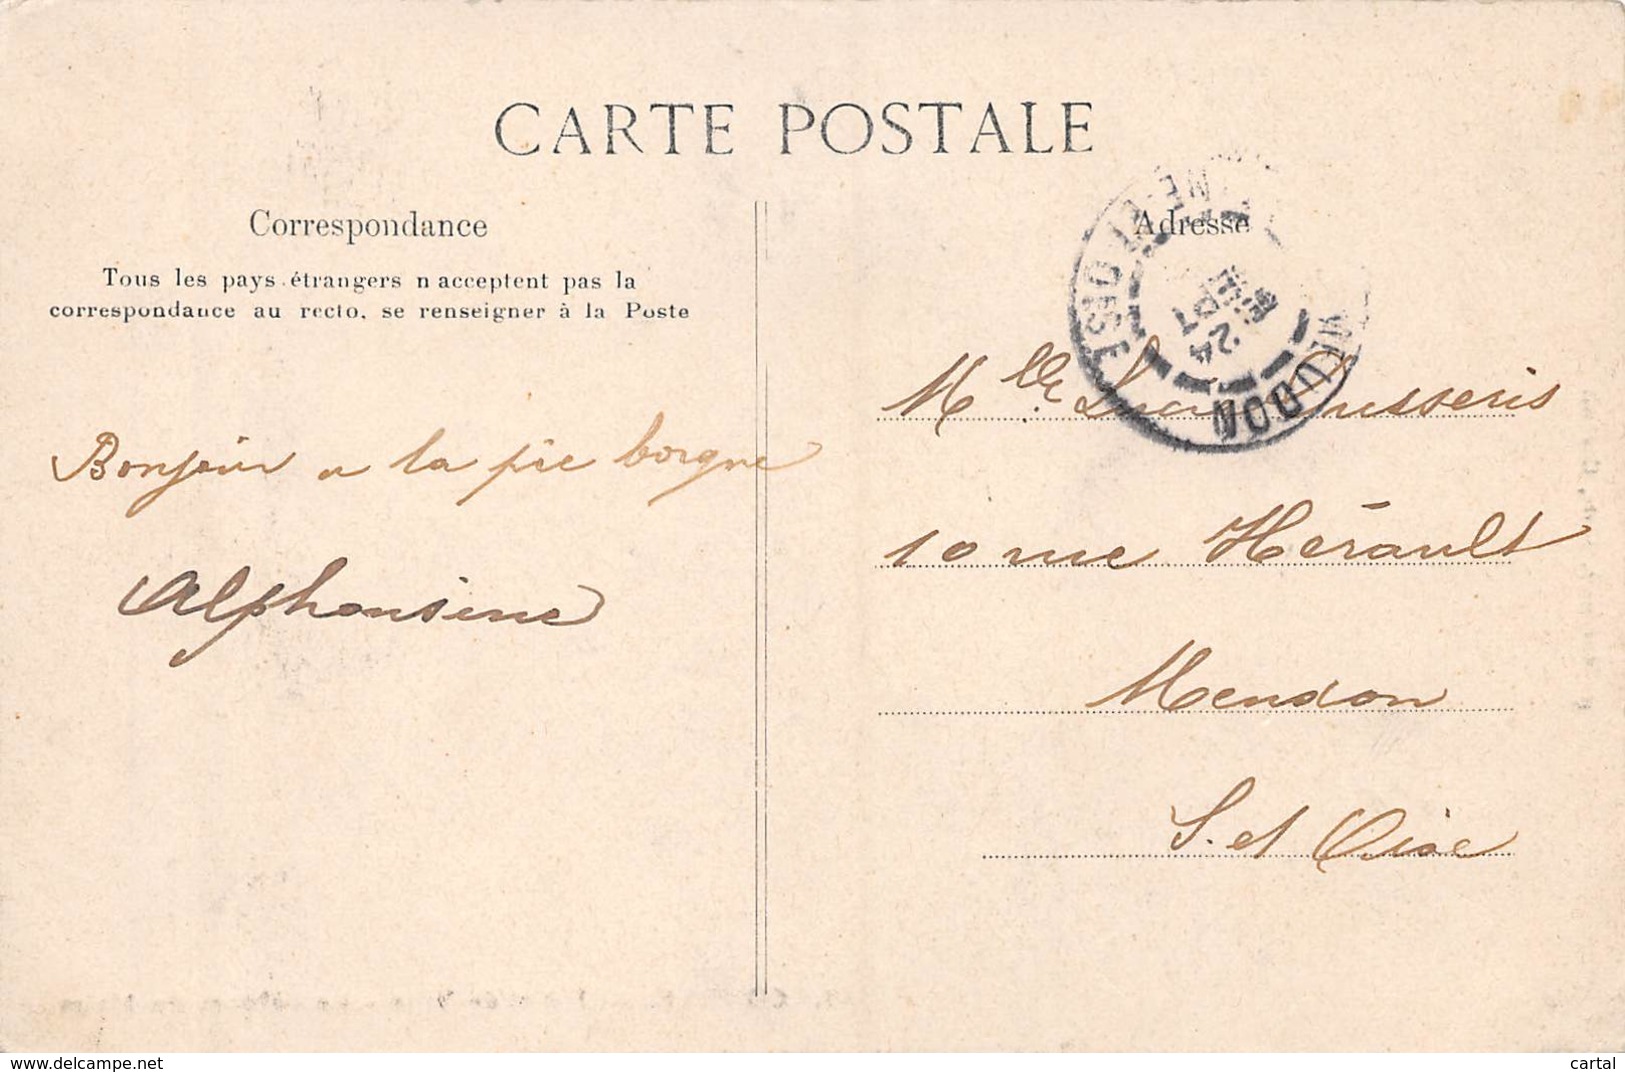 CARTE POSTALE
Correspondance
Tous les pays étrangers n acceptent pas la
correspondance au recto, se renseigner à la Poste
Bonjour a la pie borgne
Alphonsine
Adresse
SEINE-ET-OISE
MEUDON
24
SEPT
Mlle Lucie
10 rue Hérault
Meudon
S. et Oise
delcampe.net
cartal